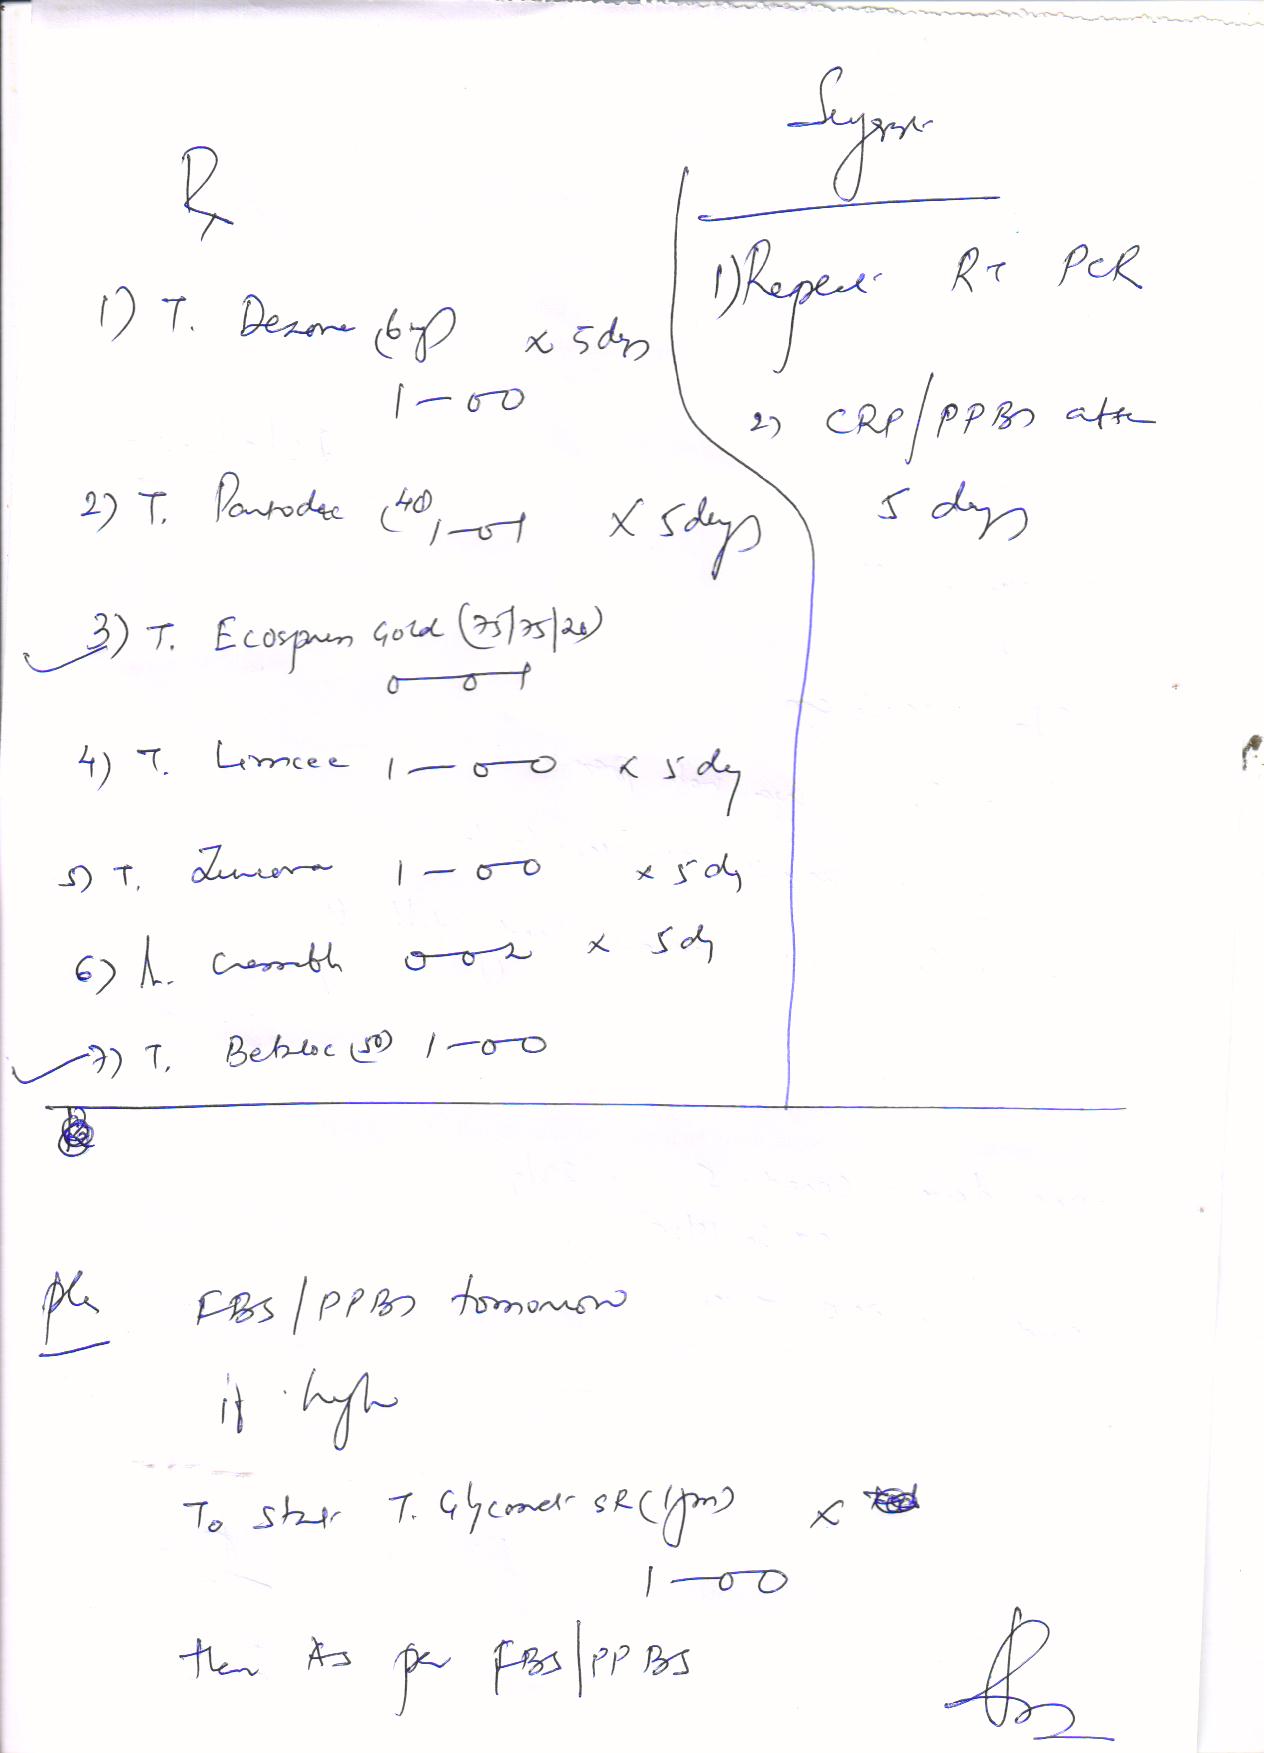 Rx
1) T. Dezone (6mg) x 5 days
1-0-0
2) T. Pantodac (40) 1-0-1 x 5 days
3) T. Ecosprin Gold (75/75/20)
0-0-1
4) T. Limcee 1-0-0 x 5 dy
5) T. 1-0-0 x 5 dy
6) 0-0-2 x 5 dy
7) T. Betaloc (50) 1-0-0
1) Repeat RT PCR
2) CRP/PPBS after
5 days
FBS/PPBS tomorrow
if high
To start T. Glycomet SR (1gm) x
1-0-0
then As per FBS/PPBS